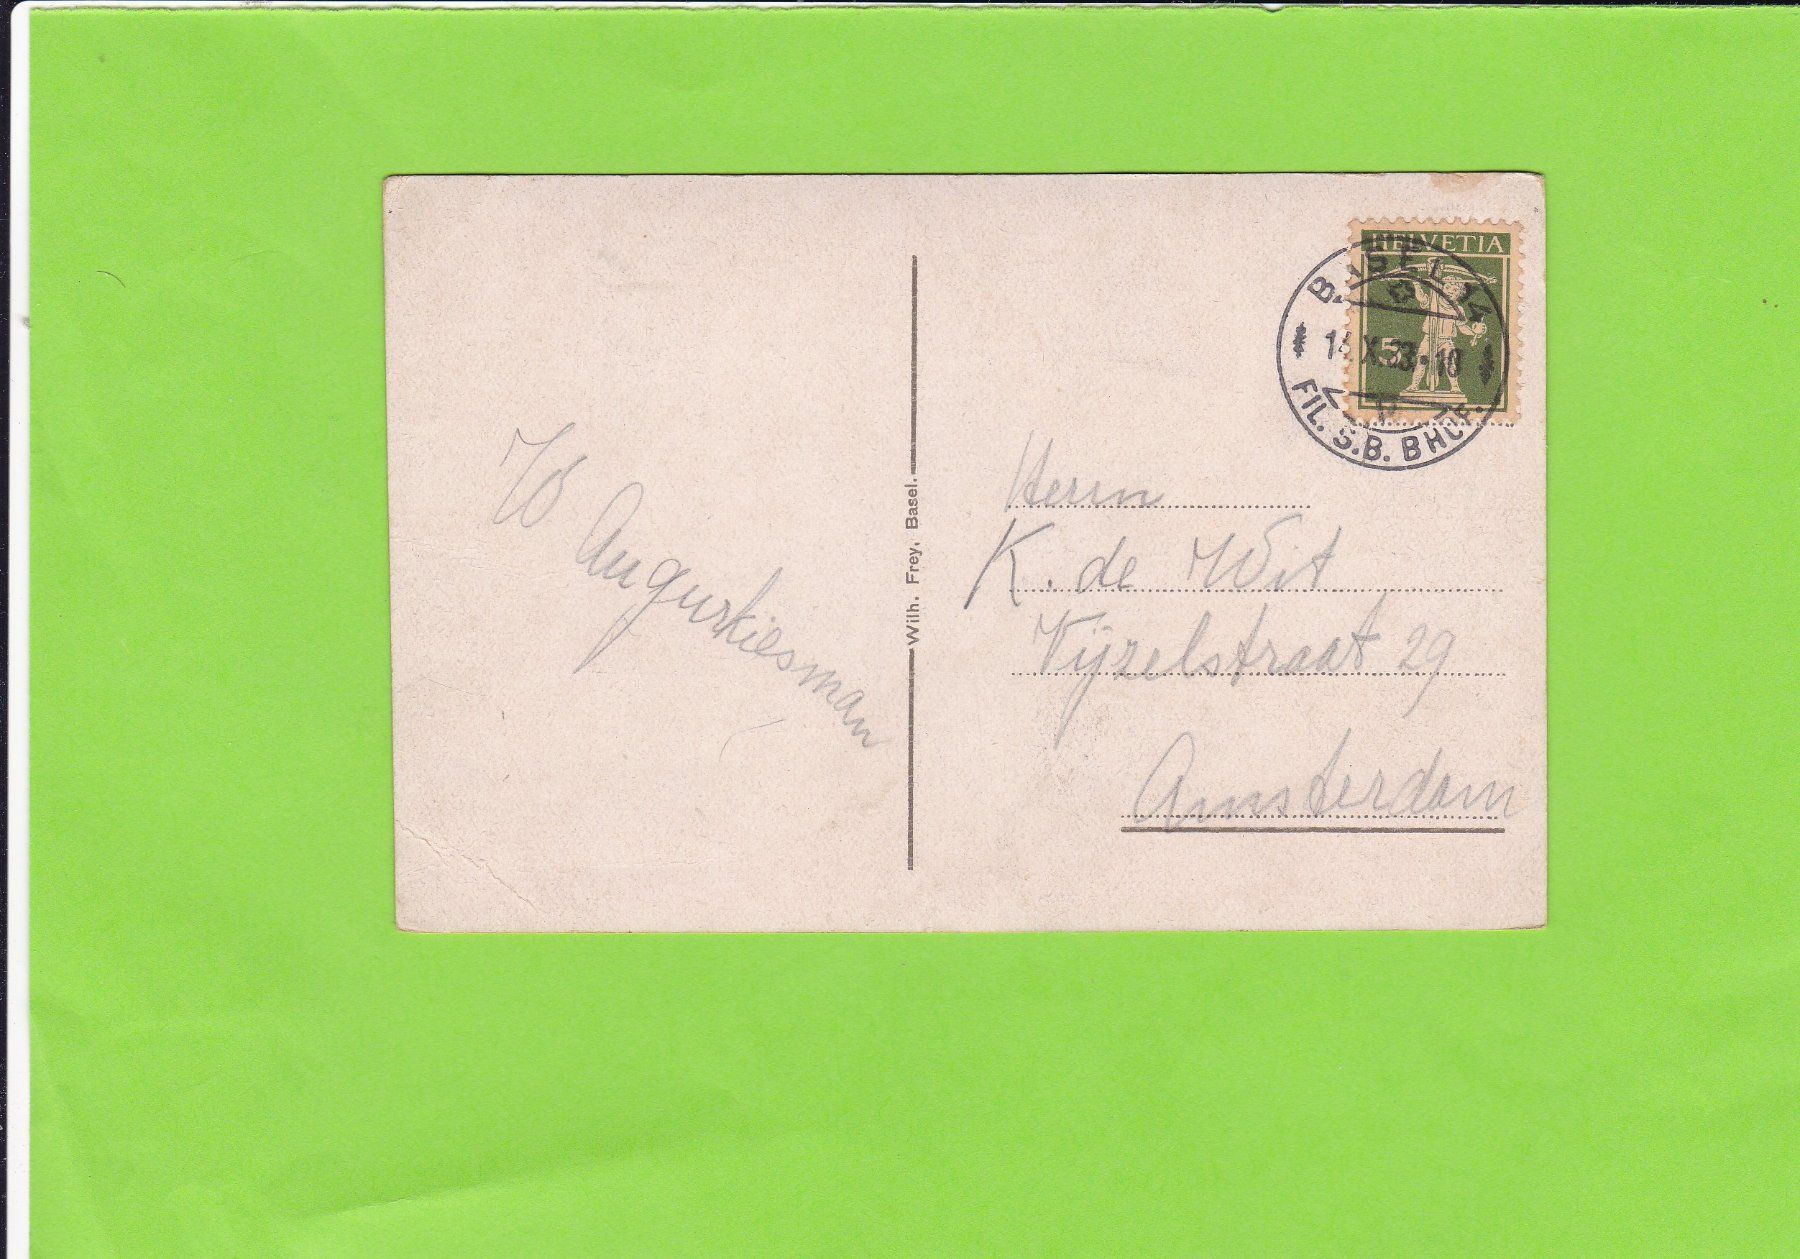 HELVETIA
BASEL 14
14.X.33.-10
5
FIL. S.B. BHOF.
Herrn
K. de Wit
Vijzelstraat 29
Amsterdam
Wilh. Frey, Basel.
Augurkiesman